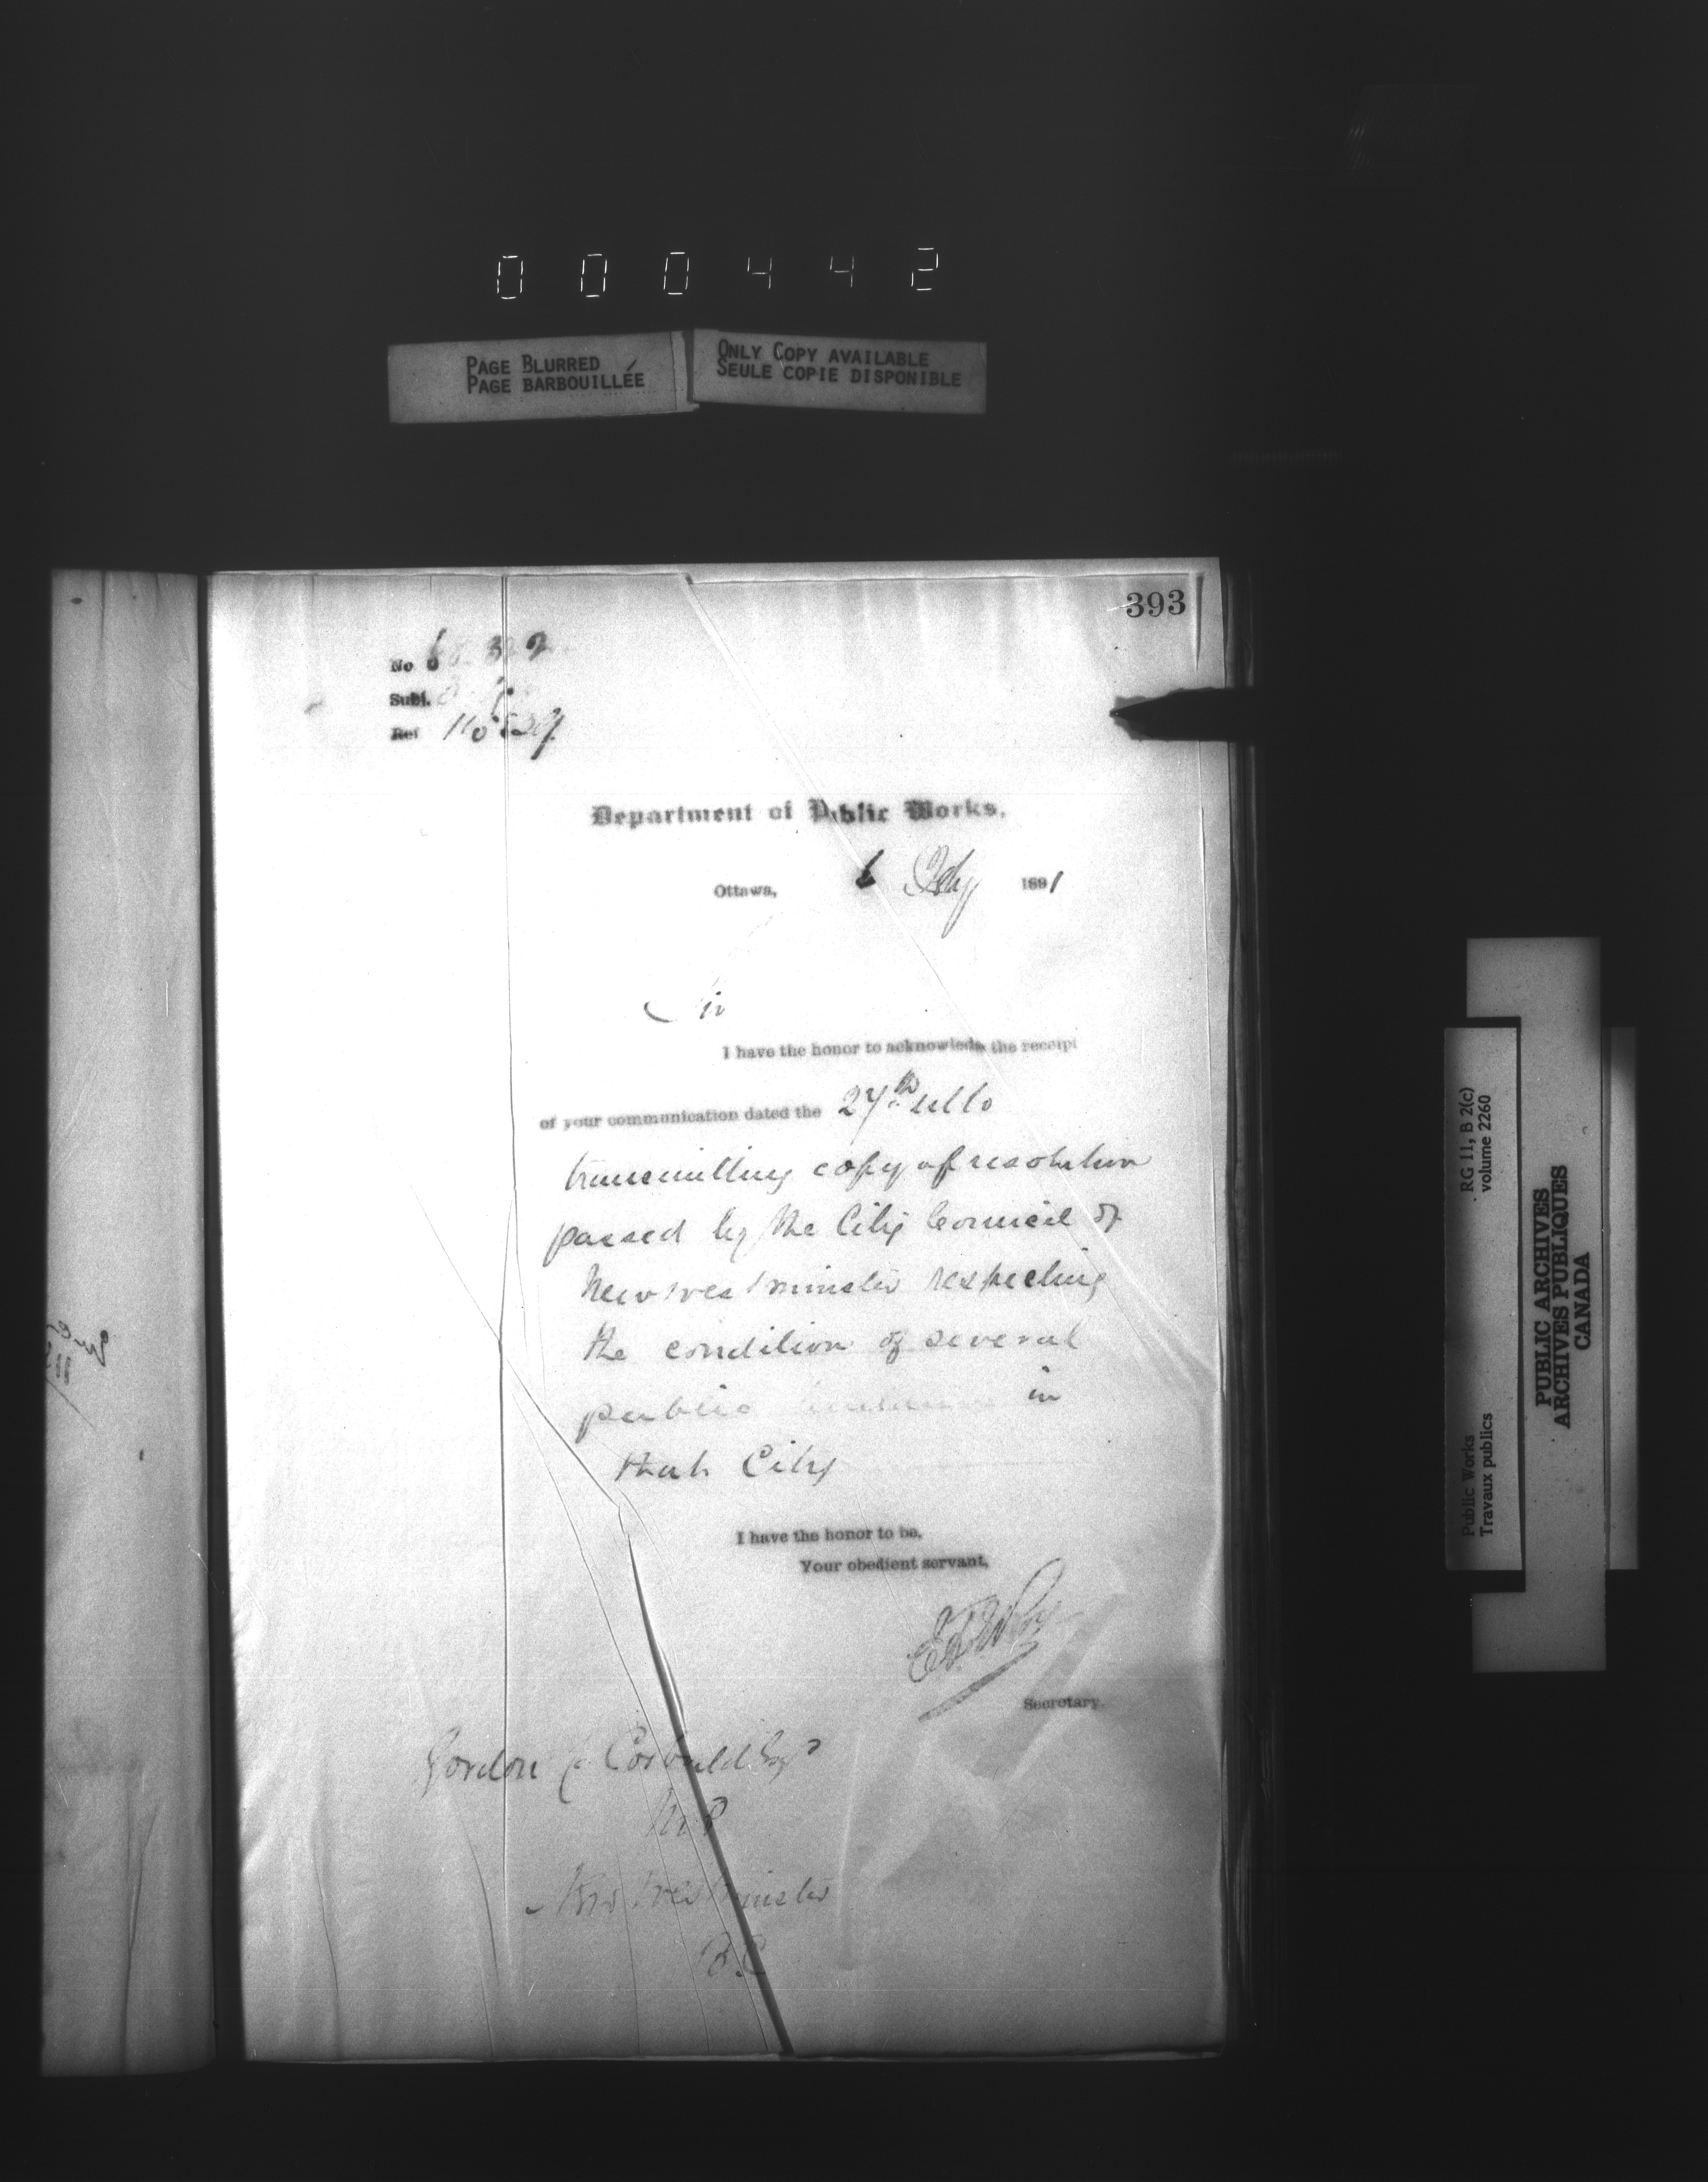 000442
PAGE BLURRED
PAGE BARBOUILLÉE
ONLY COPY AVAILABLE
SEULE COPIE DISPONIBLE
393
No
Subj.
Ref
Department of Public Works,
Ottawa, 6 Feby 1891
Sir
I have the honor to acknowledge the receipt
of your communication dated the 27th ulto
transmitting copy of resolution
passed by the City Council of
New Westminster respecting
the condition of several
public in
that City
I have the honor to be,
Your obedient servant,
Secretary.
Gordon Corbould Esqr
M.P
New Westminster
B.C
RG 11, B 2(c)
volume 2260
Public Works
Travaux publics
PUBLIC ARCHIVES
ARCHIVES PUBLIQUES
CANADA